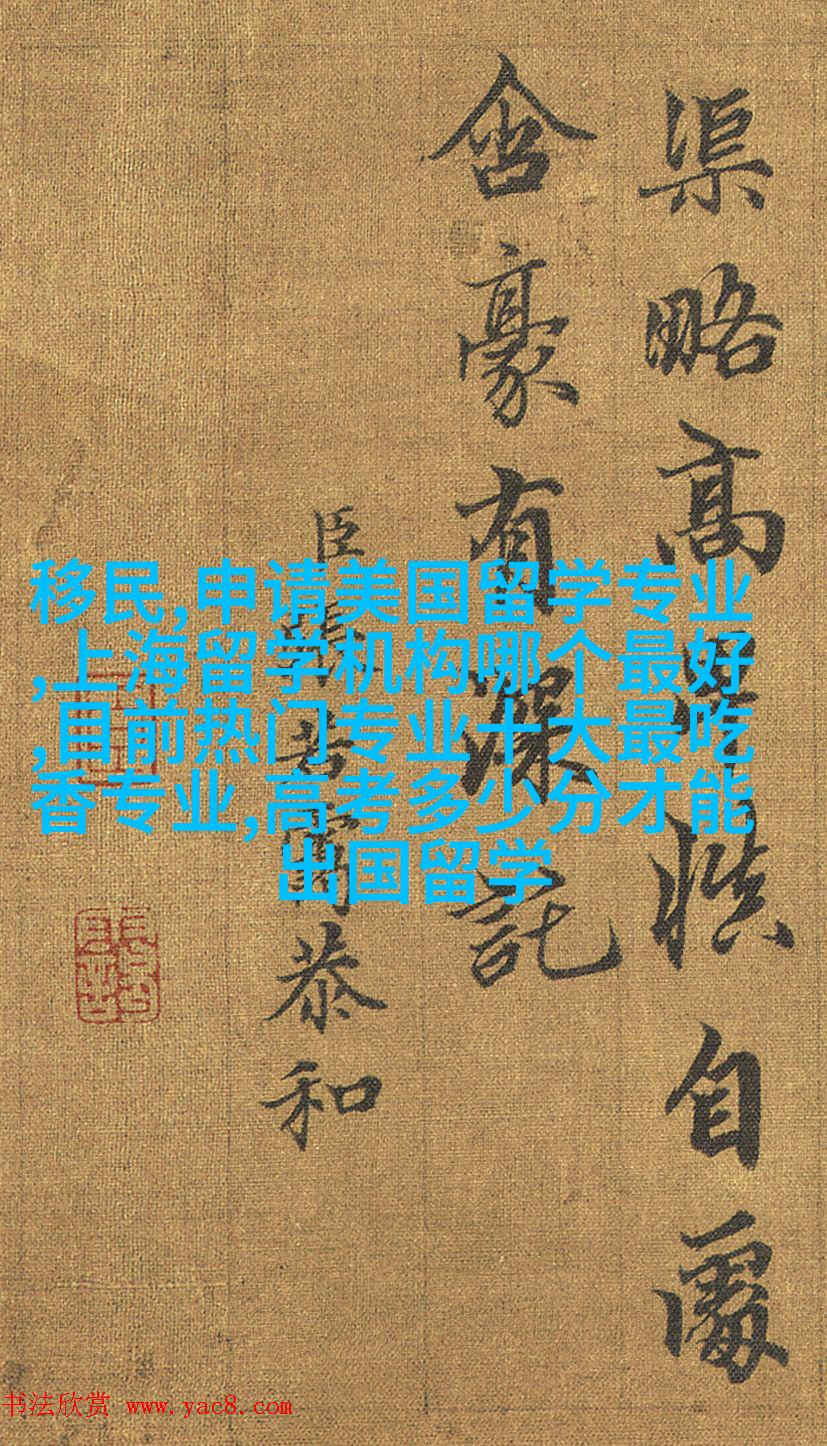 渠略高
自
含豪有深託
臣
恭和
移民,申请美国留学专业
,上海留学机构哪个最好
,目前热门专业十大最吃
香专业,高考多少分才能
出国留学
书法欣赏 www.yac8.com